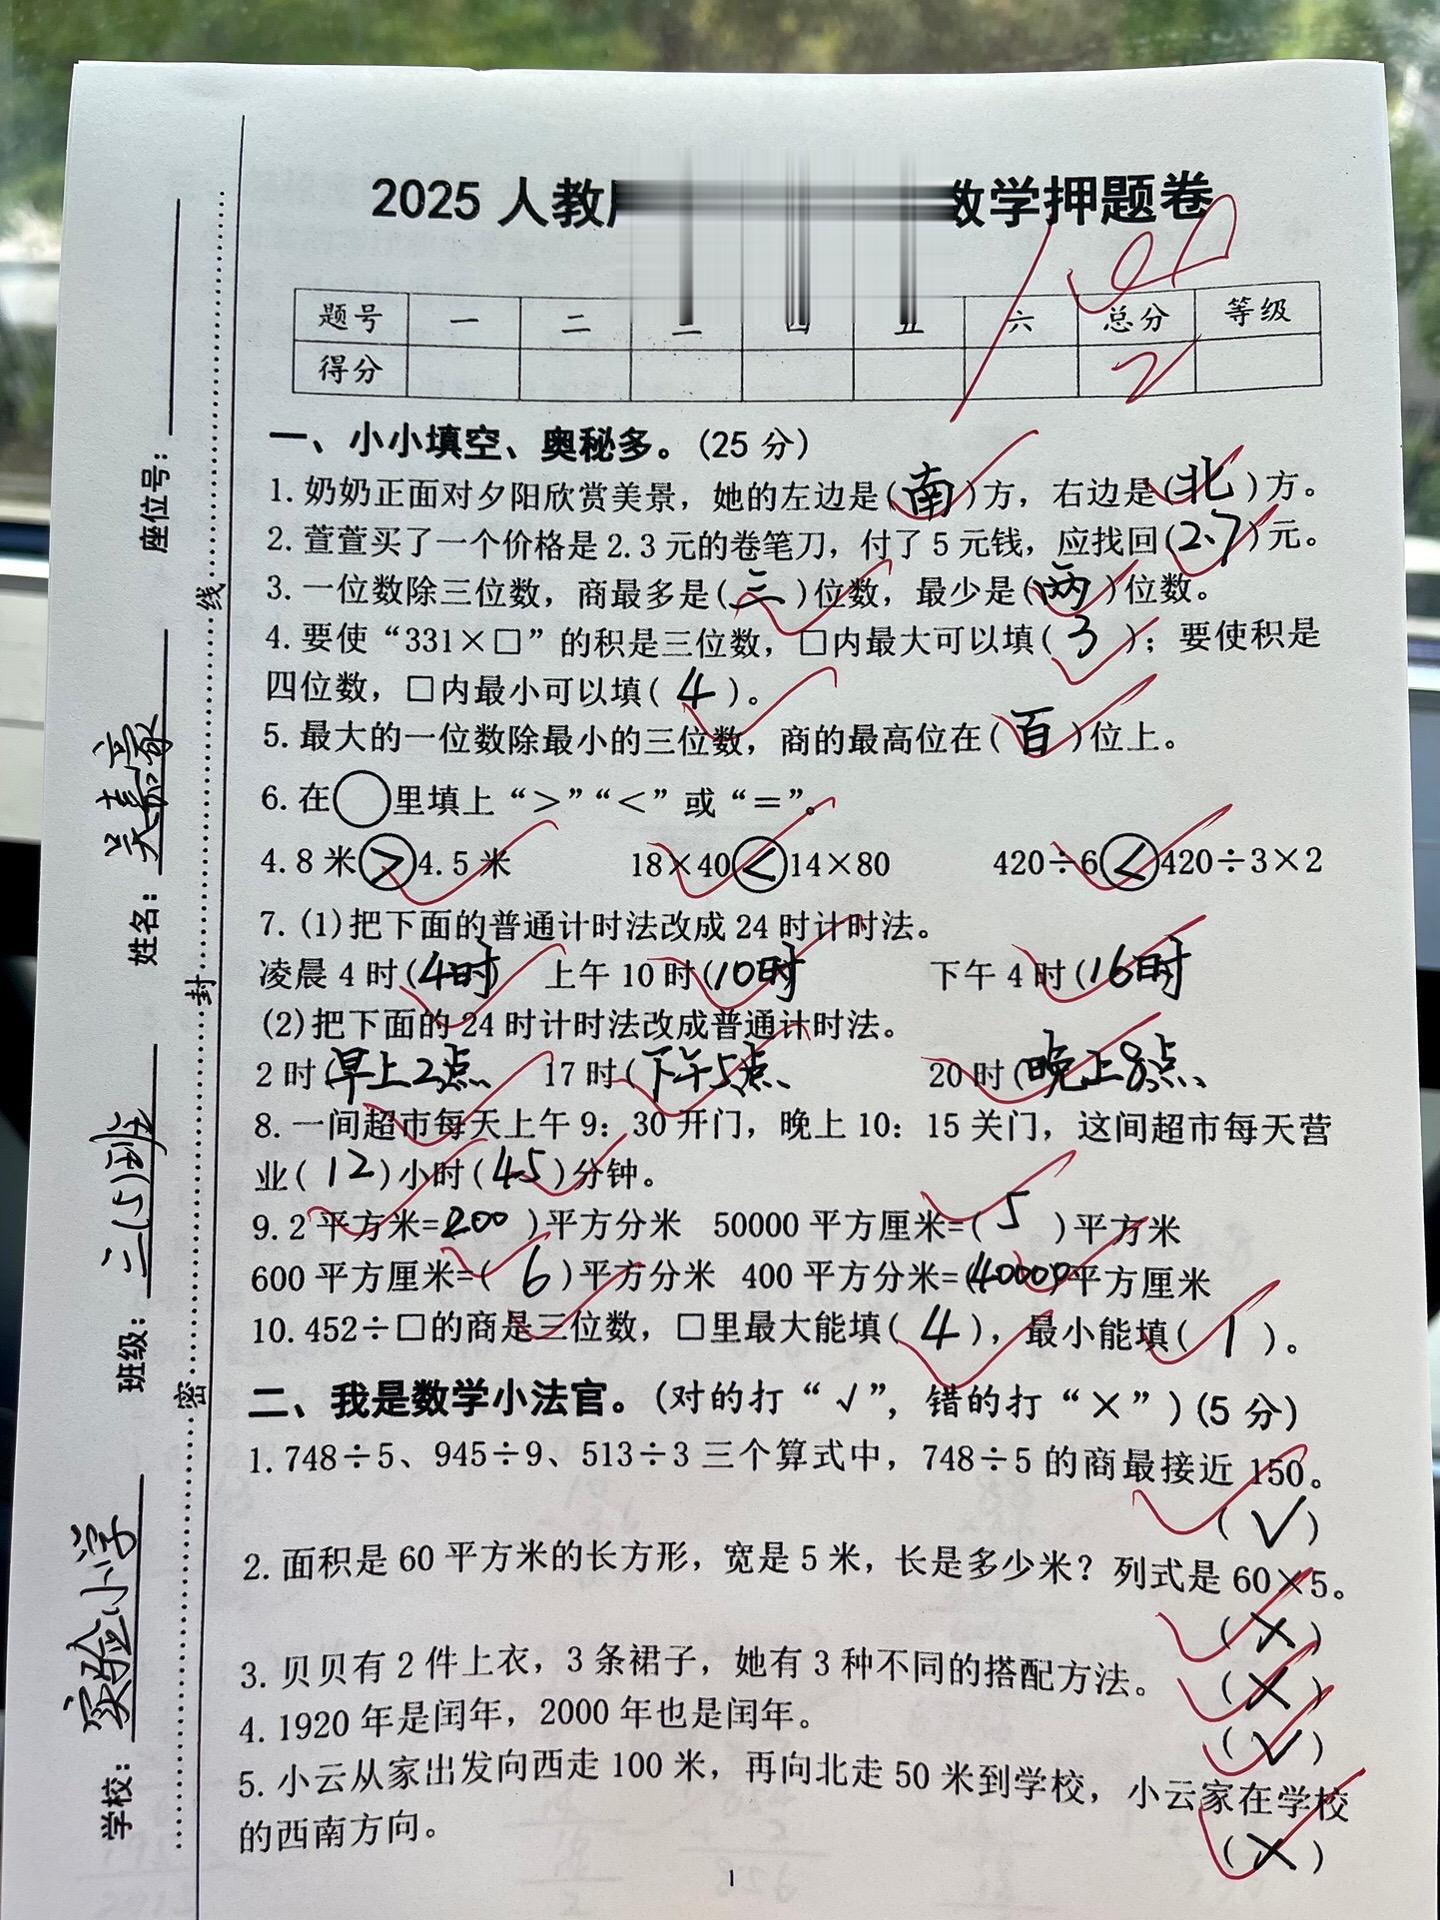 2025 人教 数学押题卷
题号 一 二 三 四 五 六 总分 等级
得分
一、小小填空、奥秘多。(25 分)
1. 奶奶正面对夕阳欣赏美景，她的左边是(南)方，右边是(北)方。
2. 萱萱买了一个价格是 2.3 元的卷笔刀，付了 5 元钱，应找回(2.7)元。
3. 一位数除三位数，商最多是(三)位数，最少是(两)位数。
4. 要使“331×□”的积是三位数，□内最大可以填(3)；要使积是
四位数，□内最小可以填(4)。
5. 最大的一位数除最小的三位数，商的最高位在(百)位上。
6. 在○里填上“＞”“＜”或“＝”。
4.8 米＞4.5 米 18×40＜14×80 420÷6＜420÷3×2
7. (1)把下面的普通计时法改成 24 时计时法。
凌晨 4 时(4时) 上午 10 时(10时) 下午 4 时(16时
(2)把下面的 24 时计时法改成普通计时法。
2 时(早上2点 17 时(下午5点 20 时(晚上8点
8. 一间超市每天上午 9：30 开门，晚上 10：15 关门，这间超市每天营
业(12)小时(45)分钟。
9. 2 平方米=200)平方分米 50000 平方厘米=(5)平方米
600 平方厘米=(6)平方分米 400 平方分米=(40000)平方厘米
10. 452÷□的商是三位数，□里最大能填(4)，最小能填(1)。
二、我是数学小法官。(对的打“√”，错的打“×”)(5 分)
1. 748÷5、945÷9、513÷3 三个算式中，748÷5 的商最接近 150。
(√)
2. 面积是 60 平方米的长方形，宽是 5 米，长是多少米？列式是 60×5。
(×)
3. 贝贝有 2 件上衣，3 条裙子，她有 3 种不同的搭配方法。 (×)
4. 1920 年是闰年，2000 年也是闰年。 (√)
5. 小云从家出发向西走 100 米，再向北走 50 米到学校，小云家在学校
的西南方向。 (×)
1
学校：实验小学 班级：三(5)班 姓名：吴嘉豪 座位号：
密 封 线